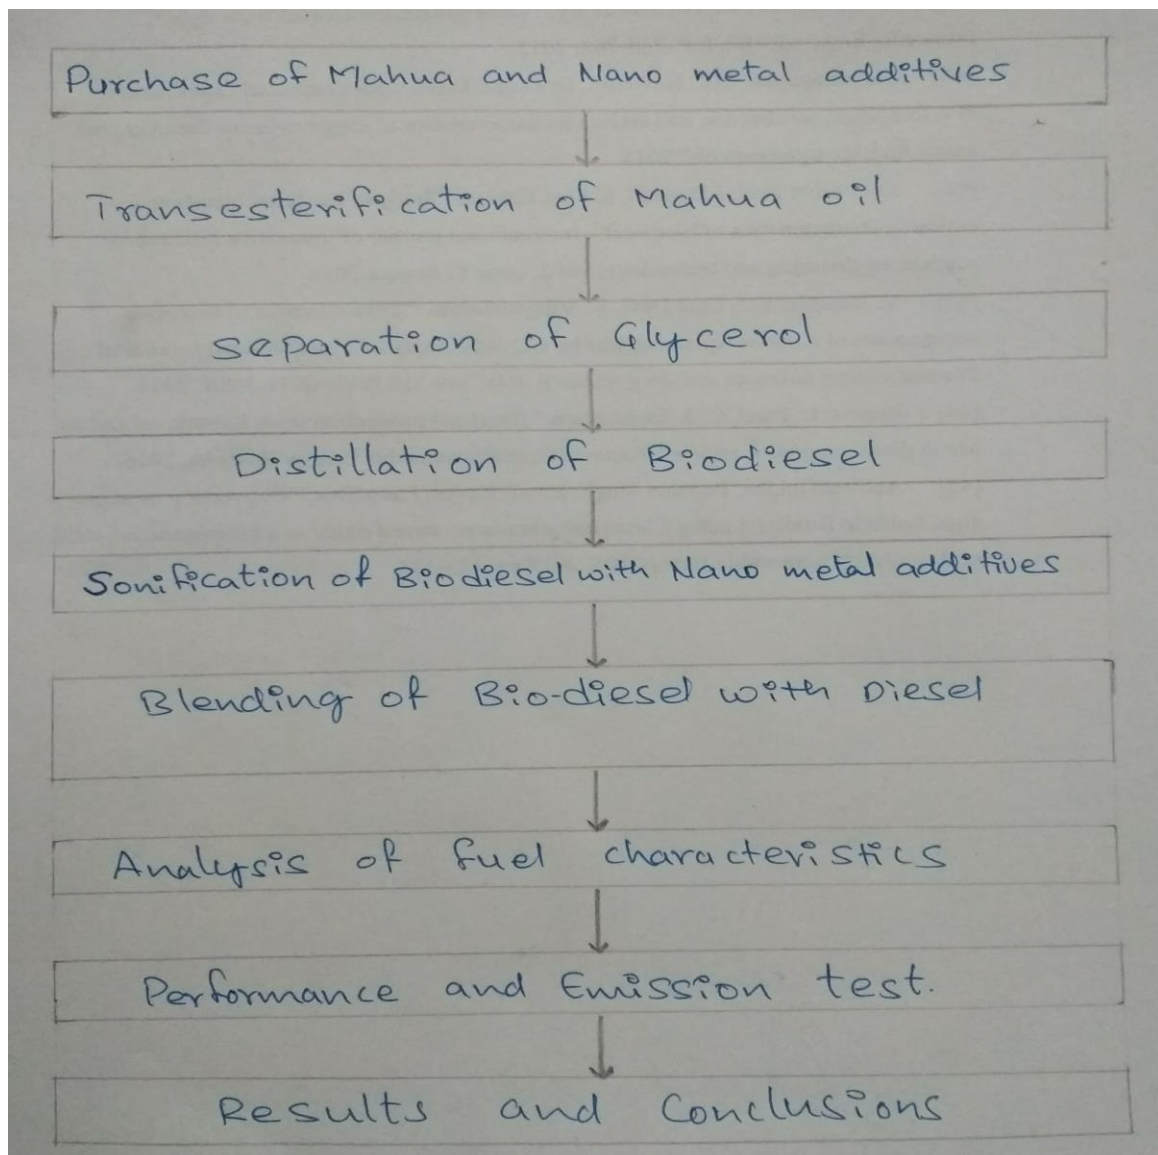 Purchase of Mahua and Nano metal additives
Transesterification of Mahua oil
Separation of Glycerol
Distillation of Biodiesel
Sonification of Biodiesel with Nano metal additives
Blending of Bio-diesel with Diesel
Analysis of fuel characteristics
Performance and Emission test.
Results and Conclusions